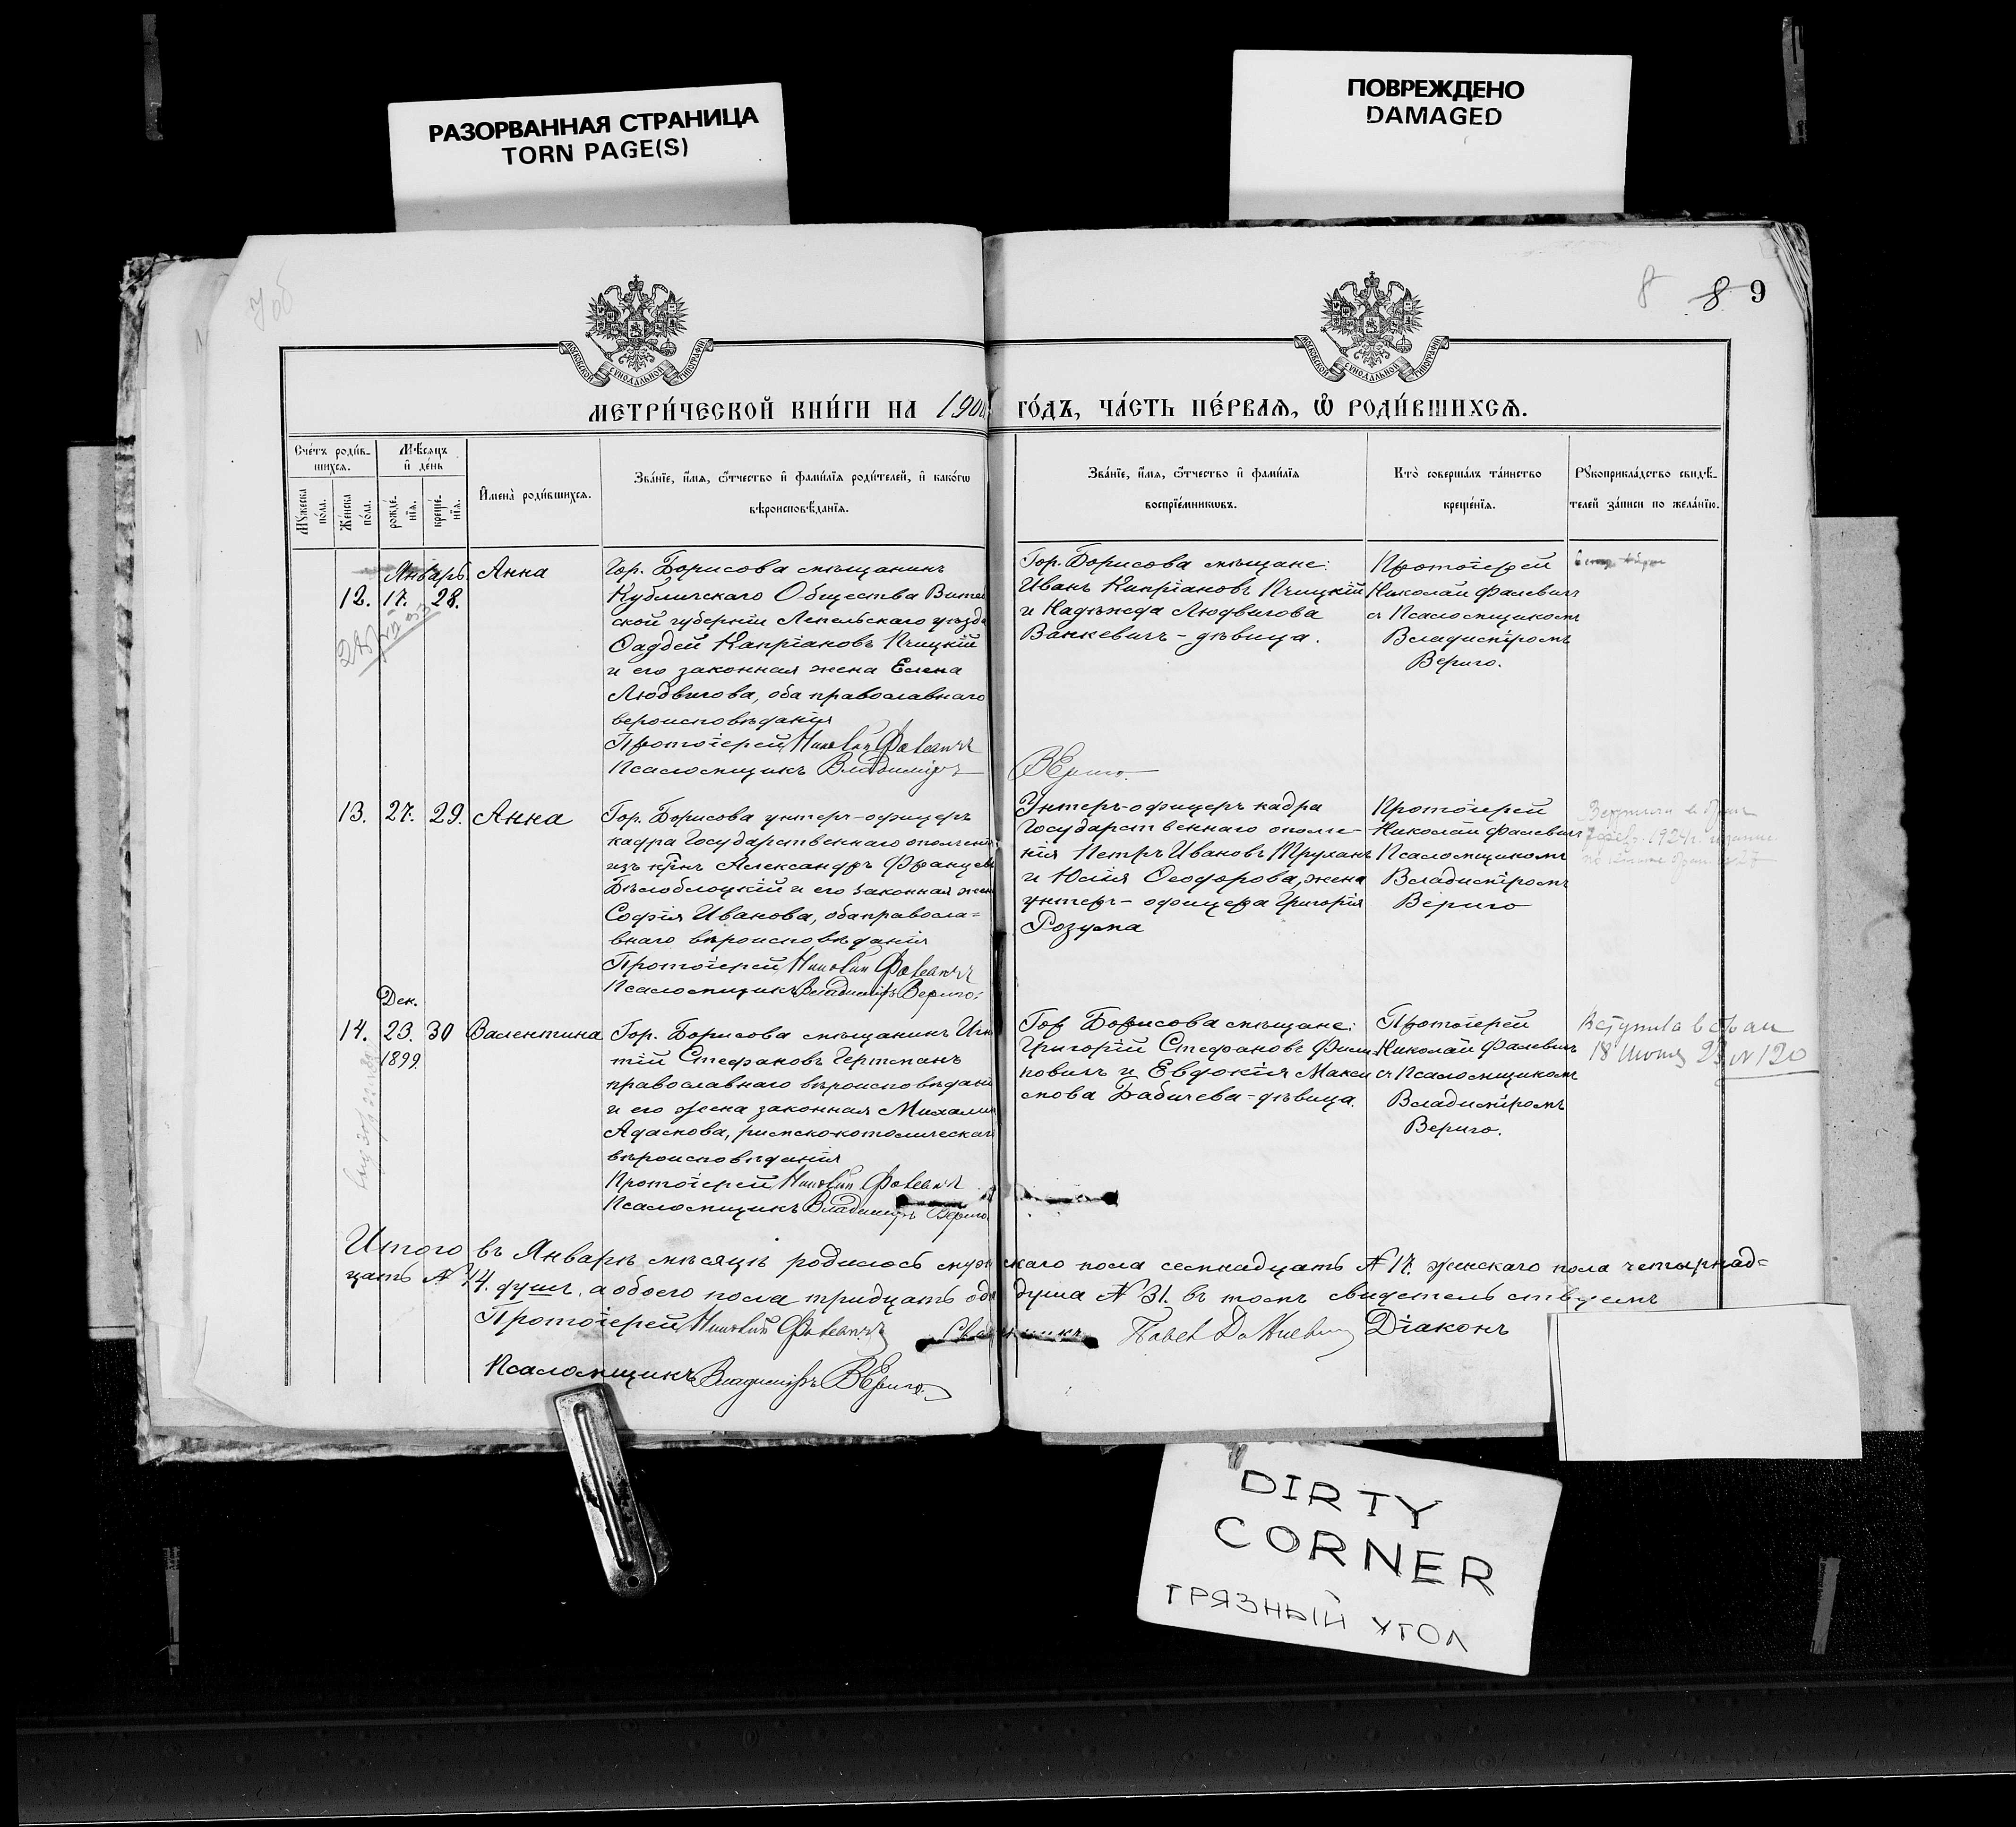 РАЗОРВАННАЯ СТРАНИЦА
TORN PAGE(S)
ПОВРЕЖДЕНО
DAMAGED
7 об
8 8 9
МОСКОВСКОЙ СѴНОДАЛЬНОЙ ТИПОГРАФІИ
МОСКОВСКОЙ СѴНОДАЛЬНОЙ ТИПОГРАФІИ
МЕТРИ́ЧЕСКОЙ КНИ́ГИ НА 1900
ГО́ДЪ, ЧА́СТЬ ПЕ́РВАЯ, Ѡ РОДИ́ВШИХСЯ.
Сче́тъ роди́в-
шихся.
Мѣ́сяцъ
и де́нь
Му́жеска
по́ла.
Же́нска
по́ла.
рожде́-
нїя.
креще́-
нїя.
И́мена̀ роди́вшихся.
Зва́нїе, и́мя, ѻ҆́тчество и фами́лїя роди́телей, и како́гѡ
вѣроисповѣ́данїя.
Зва́нїе, и́мя, ѻ҆́тчество и фами́лїя
воспрїе́мникѡвъ.
Кто̀ соверша́лъ та́инство
креще́нїя.
Рꙋкоприкла́дство свидѣ́-
телей за́писи по жела́нїю.
Январь
12. 17. 28.
Анна
Гор. Борисова мѣщанинъ
Кубличскаго Общества Витеб
ской губерніи Лепельскаго уѣзда
Фаддей Кипріановъ Пчицкій
и его законная жена Елена
Людвигова, оба православнаго
вероисповѣданія
Протоіерей Николай Фалевичъ
Псаломщикъ Владиміръ
Вериго.
Гор. Борисова мѣщане:
Иванъ Кипріановъ Пчицкій
и Надѣжда Людвигова
Ванкевичъ - дѣвица.
Протоіерей
Николай Фалевичъ
съ Псаломщикомъ
Владиміромъ
Вериго.
13. 27. 29. Анна
Гор. Борисова унтеръ-офицеръ
кадра Государственнаго ополчені
изъ крѣ Александръ Францевъ
Бѣлоблоцкій и его законная жен
Софія Иванова, оба правосла=
внаго вѣроисповѣданія
Протоіерей Николай Фалевичъ
Псаломщикъ Владиміръ Вериго.
Унтеръ-офицеръ кадра
Государственнаго ополче-
нія Петръ Ивановъ Труханъ
и Юлія Ѳеодорова, жена
унтеръ-офицера Григорія
Розума
Протоіерей
Николай Фалевичъ
Псаломщикомъ
Владиміромъ
Вериго
Дек.
14. 23. 30
1899.
Валентина
Гор. Борисова мѣщанинъ Игна
тій Стефановъ Гертманъ
православнаго вѣроисповѣдані
и его жена законная Михалин
Адамова, римскокатолическаг
вѣроисповѣданія
Протоіерей Николай Фалевичъ
Псаломщикъ Владиміръ Вериго.
Гор Борисова мѣщане:
Григорій Стефановъ Фили
повичъ и Евдокія Макси
мова Бабичева - дѣвица.
Протоіерей
Николай Фалевичъ
съ Псаломщикомъ
Владиміромъ
Вериго.
Вступила в брак
18 Июня 23 N 120
Итого въ Январѣ мѣсяцѣ родилось муж скаго пола семнадцать № 17. женскаго пола четырнад=
цать № 14. душъ, а обоего пола тридцать одн душа № 31. въ томъ свидетельствуемъ
Протоіерей Николай Фалевичъ Священникъ Павелъ Діаконъ
Псаломщикъ Владиміръ Вериго.
DIRTY
CORNER
ГРЯЗНЫЙ УГОЛ